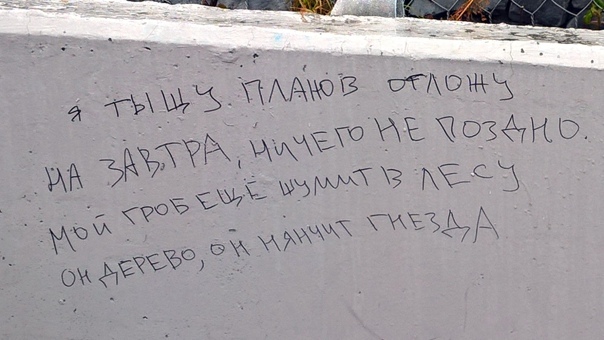 я тыщу планов отложу
на завтра, ничего не поздно.
мой гроб ещё шумит в лесу
он дерево, он нянчит гнезда